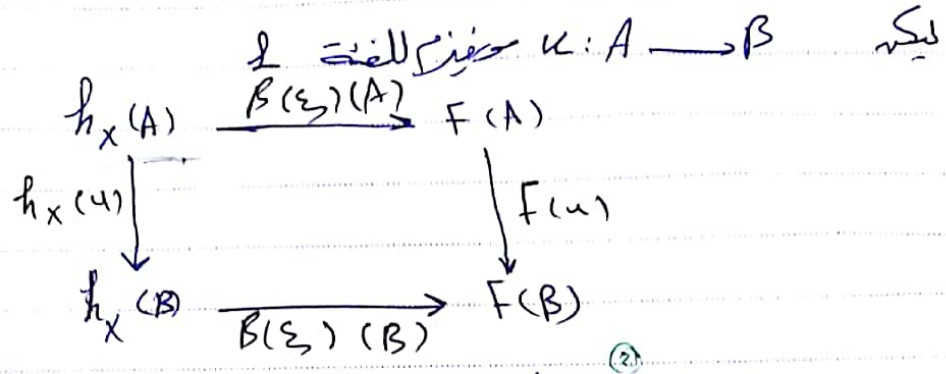 ليكن u : A → B مورفيزم للفئة L
h_X (A) β(ξ)(A) F(A)
h_X (u) F(u)
h_X (B) β(ξ)(B) F(B)
2